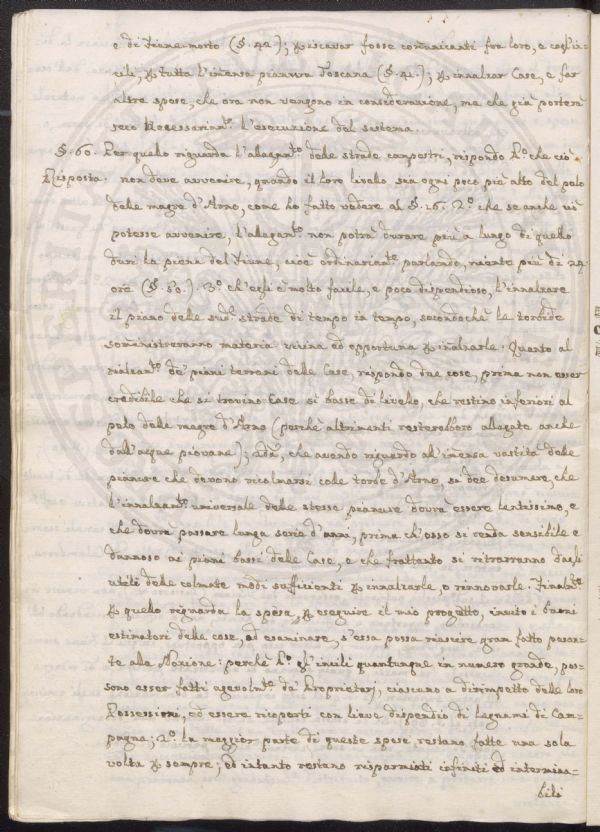 e di Fiume morto (§. 42); p iscavar fosse comunicanti fra loro, e cogl'in-
cili, p tutta l'imensa pianura Toscana (§. 41.); p innalzar Case, e far
altre spese, che ora non vengono in considerazione, ma che già porterà
seco Necessariamte. l'esecuzione del sistema.
§. 60. Per quello riguarda l'allagamto. delle strade campestri, rispondo Po. che ciò
Risposta. non deve avvenire, quando il loro livello sia ogni poco più alto del pelo
delle magre d'Arno, come ho fatto vedere al §. 26. 2o. che se anche ciò
potesse avvenire, l'allagamto. non potrà durare più a lungo di quello
duri la piena del Fiume, cioè ordinariamte. parlando, niente più di 24
ore (§. 30.). 3o. ch'egli è molto facile, e poco dispendioso, l'innalzare
il piano delle sude. strade di tempo in tempo, secondochè le torbide
somministreranno materia vicina ed opportuna p inalzarle. Quanto al
rialzamto. de' piani terreni delle Case, rispondo due cose, prima non esser
credibile che si trovino Case si basse di livello, che restino inferiori al
pelo delle magre d'Arno (perchè altrimenti resterebbero allagate anche
dall'acque piovane); 2da., che avendo riguardo all'imensa vastità delle
pianure che devono ricolmarsi colle torbe d'Arno, si dee desumere, che
l'innalzamto. universale delle stesse pianure dovrà essere lentissimo, e
che dovrà passare lunga serie d'anni, prima ch'esso si renda sensibile e
dannoso ai piani bassi delle Case, e che frattanto si ritrarranno dagli
utili delle colmate modi sufficienti p innalzarle, o rinnovarle. Finalmte.
p quello riguarda la spesa p eseguire il mio progetto, invito i buoni
estimatori delle cose, ad esaminare, s'essa possa riuscire gran fatto pesan-
te alla Nazione: perchè Po. gl'incili quantunque in numero grande, pos-
sono esser fatti agevolmte. da' Proprietarj, ciascuno a dirimpetto delle loro
Possessioni, ed essere ricoperti con lieve dispendio di Legnami di Cam-
pagna; 2o. la maggior parte di queste spese restano fatte una sola
volta p sempre; ed intanto restano risparmiati infiniti ed intermina-
bili